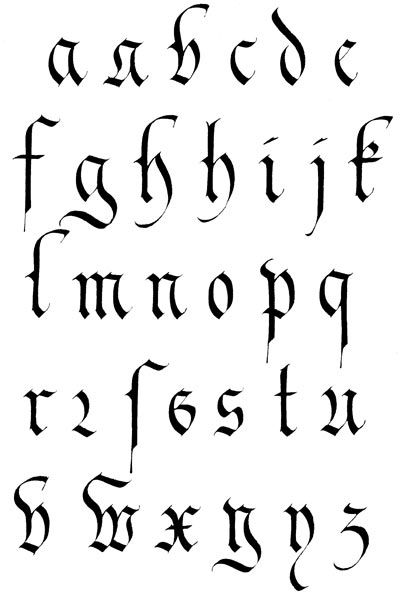 a a b c d e
f g h h i j k
l m n o p q
r ꝛ ſ s s t u
v w x y y z